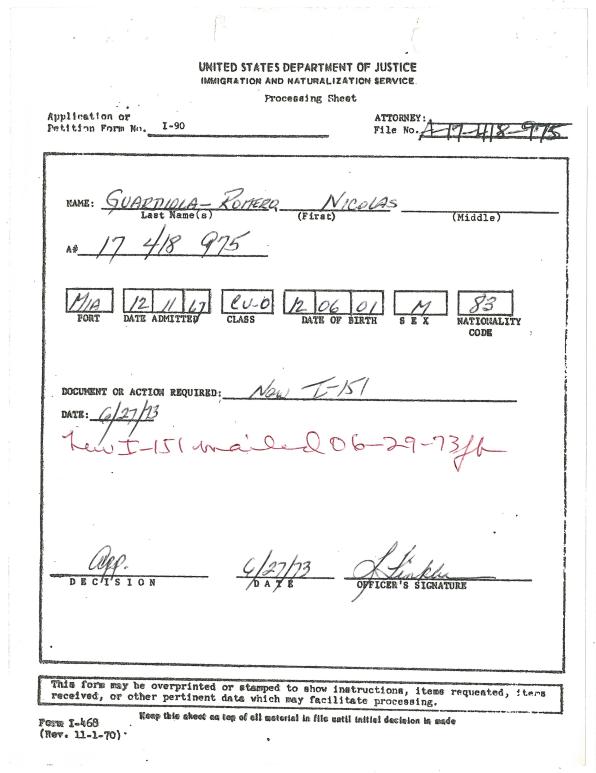 UNITED STATES DEPARTMENT OF JUSTICE
IMMIGRATION AND NATURALIZATION SERVICE
Processing Sheet
Application or
Petition Form No. I-90
ATTORNEY:
File No. A-17-418-975
NAME: GUARDIOLA-ROMERO NICOLAS
Last Name(s) (First) (Middle)
A# 17 418 975
MIA 12 11 67 CU-0 12 06 01 M 83
PORT DATE ADMITTED CLASS DATE OF BIRTH SEX NATIONALITY
CODE
DOCUMENT OR ACTION REQUIRED: New I-151
DATE: 6/27/73
new I-151 mailed 06-29-73
App. 6/27/73
DECISION DATE OFFICER'S SIGNATURE
This form may be overprinted or stamped to show instructions, items requested, items
received, or other pertinent data which may facilitate processing.
Form I-468 Keep this sheet on top of all material in file until initial decision is made
(Rev. 11-1-70)